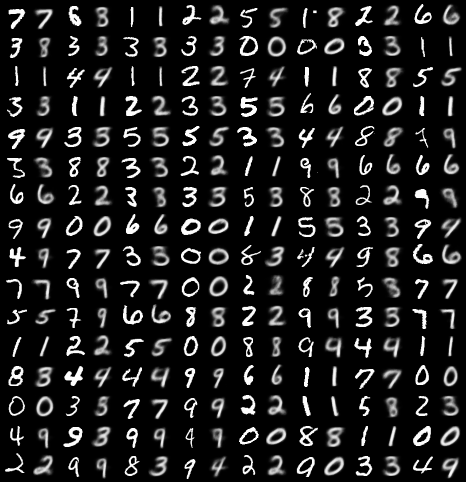 7 7 6 3 1 1 2 2 5 5 1 8 2 2 6 6
3 8 3 3 3 3 3 3 0 0 0 0 3 3 1 1
1 1 4 4 1 1 2 2 7 4 1 1 8 8 5 5
3 3 1 1 2 2 3 3 5 5 6 6 0 0 1 1
9 9 3 3 5 5 5 5 3 3 4 4 8 8 7 9
3 3 8 8 3 3 2 2 1 1 9 9 6 6 6 6
6 6 2 2 3 3 3 3 5 3 8 8 2 2 9 9
9 9 0 0 6 6 0 0 1 1 5 5 3 3 9 4
4 9 7 7 3 3 0 0 8 3 4 4 9 8 6 6
7 7 9 9 7 7 0 0 2 2 8 8 5 3 7 7
5 5 7 9 6 6 8 8 2 2 9 9 3 3 7 7
1 1 2 2 5 5 0 0 8 8 9 9 4 4 1 1
8 3 4 4 4 4 9 9 6 6 1 1 7 7 0 0
0 0 3 3 7 7 9 9 2 2 1 1 5 8 2 3
4 9 9 3 9 9 4 9 0 0 8 8 1 1 0 0
2 2 9 9 8 3 9 4 2 2 0 0 3 3 4 9